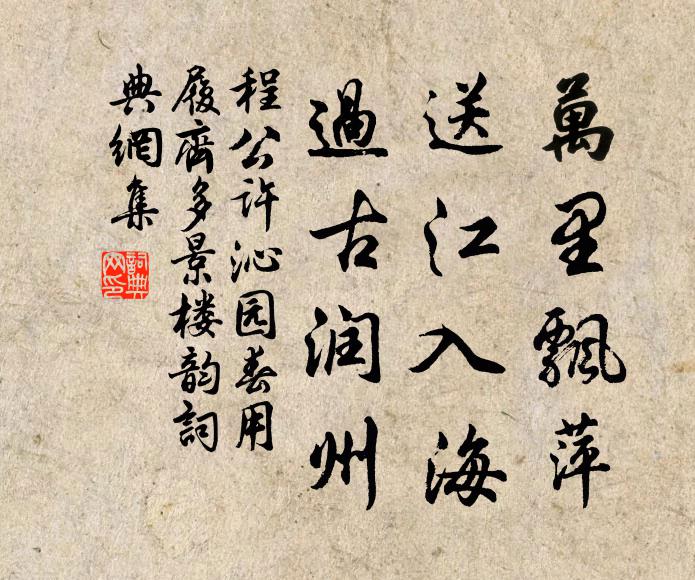 萬里飄萍
送江入海
過古润州
程公许沁园春用
履齋多景楼韵詞
典網集
詞典网印